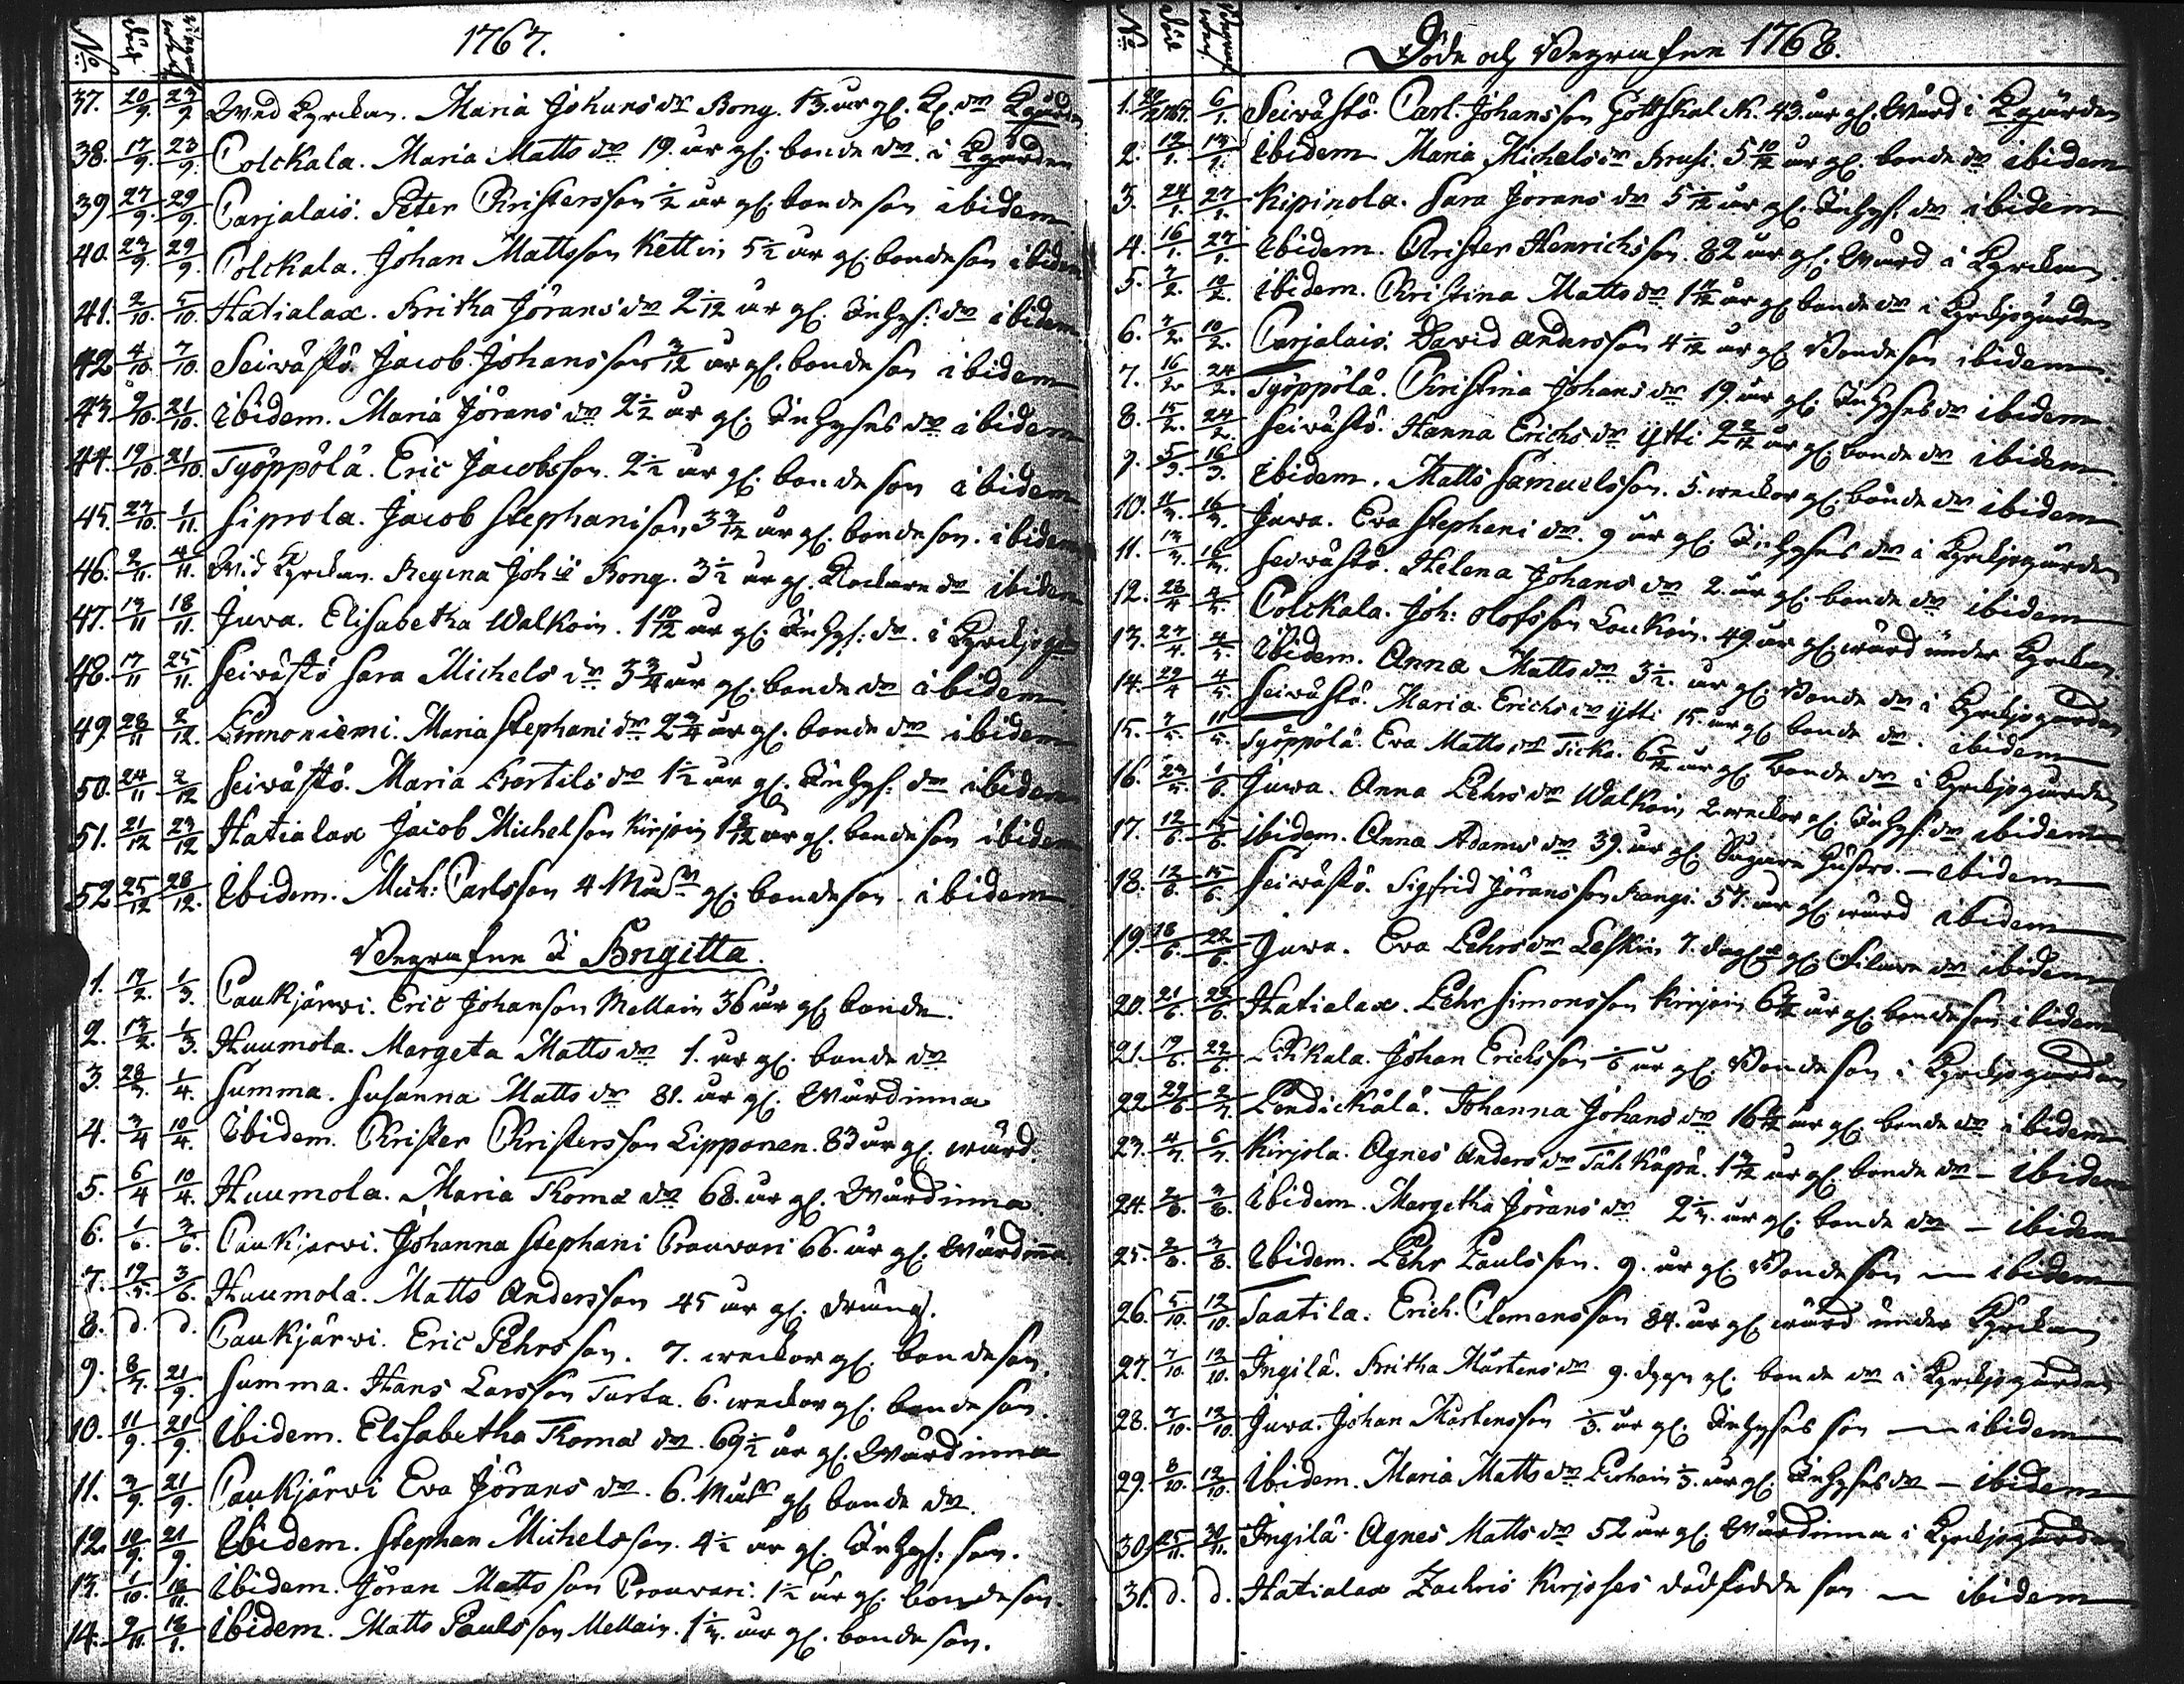 1767.
No död begraf
37. 20/9. 23/9. Wed Kyrckan. Maria Johans dr Bong. 13. år gl. Kl. dr Kgården
38. 17/9. 23/9. Colckala. Maria Matts dr 19. år gl. bonde dr. i Kgården
39 27/9. 29/9. Carjalais. Peter Christersson ½ år gl. bonde son ibidem
40. 23/9. 29/9. Colckala. Johan Mattsson Kettin 5½ år gl. bonde son ibidem
41. 2/10. 5/10. Hatialax. Britha Jörans dr 2 1/12 år gl. Inhys: dr ibidem
42 4/10. 7/10. Seiwästö. Jacob Johansson 3/12 år gl. bonde son ibidem
43. 9/10. 21/10. Ibidem. Maria Jörans dr 2½ år gl. Inhyses dr ibidem
44. 19/10. 21/10. Työppölä. Eric Jacobsson. 2½ år gl. bonde son ibidem
45. 27/10. 1/11. Siprola. Jacob Stephanison 3 3/12 år gl. bonde son. ibidem
46. 2/11. 4/11. Wid Kyrckan. Regina Joh: Bong. 3½ år gl. Klockare dr ibidem
47. 13/11 18/11. Juwa. Elisabetha Walkoin. 1 10/12 år gl. Inhys: dr. i Kyrckjog
48. 17/11 25/11. Seiwästö Sara Michels dr 3¾ år gl. bonde dr ibidem
49. 23/11 2/12. Linnoniemi. Maria Stephani dr 2¾ år gl. bonde dr ibidem
50. 24/11 2/12 Seiwästö. Maria Bertils dr 1½ år gl. Inhys: dr ibidem
51. 21/12 23/12 Hatialax Jacob Michelson Kirjoin 1 9/12 år gl. bonde son ibidem
52 25/12 28/12. Ibidem. Mich: Carlsson 4 Mån gl. bonde son ibidem
Begrafne I Brigitta.
1. 17/2. 1/3. Caukjärwi. Eric Johanson Mellain 36 år gl. bonde.
2. 13/2. 1/3. Huumola. Margeta Matts dr 1. år gl. bonde dr
3. 28/3. 1/4. Summa. Susanna Matts dr 81. år gl. Wärdinna
4. 3/4 10/4. Ibidem. Christer Christersson Lipponen. 83 år gl. wärd.
5. 6/4 10/4. Huumola. Maria Thomæ dr 68. år gl. Wärdinna.
6. 1/6. 3/6. Caukjärwi. Johanna Stephani Prouvari 66. år gl. Wärdinna.
7. 19/5. 3/6. Huumola. Matts Andersson 45 år gl. dräng.
8. d. d. Caukjärwi. Eric Pehrsson. 7. weckor gl. bonde son.
9. 8/7. 21/9. Summa. Hans Larsson Turta. 6. weckor gl. bonde son.
10. 11/9. 21/9. Ibidem. Elisabetha Thomæ dr. 69½ år gl. Wärdinna
11. 3/9. 21/9. Caukjärwi Eva Jörans dr. 6. Mån gl. bonde dr.
12. 10/9. 21/9. Ibidem. Stephan Michelsson. 4½ år gl. Inhys: son.
13. 1/10. 10/11. Ibidem. Jöran Mattsson Prouvari. 1½ år gl. bonde son.
14. 9/11. 13/1. Ibidem. Matts Paulsson Mellain. 1½ år gl. bonde son.
Döde och Begrafne 1768.
No död
1. 6/1. Seiwästö. Carl Johansson Gottskalk. 43. år gl. Wärd i Kgården
2. 12/1. 13/1. Ibidem Maria Michels dr Brusi. 5 10/12 år gl. bonde dr ibidem
3. 24/1. 27/1. Kipinola. Sara Jörans dr 5 1/12 år gl. Inhys: dr ibidem
4. 16/1. 27/1. Ibidem. Christer Henrichsson. 82 år gl. Wärd i Kyrckan.
5. 7/2. 10/2. Ibidem. Christina Matts dr 1 11/12 år gl. bonde dr i Kyrckjogården
6. 7/2. 10/2. Carjalais. David Andersson 4 1/12 år gl. Bonde son ibidem.
7. 16/2. 24/2. Työppölä. Christina Johans dr 19. år gl. Inhyses dr ibidem
8. 15/2. 24/2. Seiwästö. Hanna Erichs dr Ytti 2 2/12 år gl. bonde dr ibidem
9. 5/3. 16/3. Ibidem. Matts Samuelsson. 5. weckor gl. bonde dr ibidem
10. 11/3. 16/3. Juwa. Eva Stephani dr. 9 år gl. Inhyses dr i Kyrckjogården
11. 13/3. 16/3. Seiwästö. Helena Johans dr 2. år gl. bonde dr ibidem
12. 23/4 4/5. Colckala. Joh: Olofsson Loukoin. 49. år gl. wärd under Kyrckan.
13. 27/4. 4/5. Ibidem. Anna Matts dr 3½. år gl. Bonde dr i Kyrckjogården
14. 29/4 4/5. Seiwästö. Maria Erichs dr Ytti 15. år gl. bonde dr. ibidem
15. 7/5. 11/5. Työppölä. Eva Matts dr Ticka. 6 5/12 år gl. bonde dr i Kyrckjogården
16. 23/5. 1/6. Juwa. Anna Pehrs dr Walkoin 2. weckor gl. Inhys: dr ibidem
17. 12/6. 15/6. Ibidem. Anna Adams dr 39. år gl. hustro. — ibidem
18. 12/6. 15/6. Seiwästö. Sigfrid Jöransson Kangi. 57. år gl. wärd ibidem
19. 18/6. 22/6. Juwa. Eva Pehrs dr Leskin 7. dag gl. dr ibidem
20. 21/6. 22/6. Hatialax. Pehr Simonsson Kirjoin 6 år gl. bonde son ibidem
21. 19/6. 22/6. Johan Erichsson 1/6 år gl. Bonde son i Kyrckjogården
22 29/6. 2/7. Pendickälä. Johanna Johans dr 16 år gl. bonde dr ibidem
23. 4/7. 6/7. Kirjola. Agnes Anders dr Täh käpä. 1 3/12 år gl. bonde dr — ibidem
24. 2/8. 3/8. Ibidem. Margetha Jörans dr 2 år gl. bonde dr — ibidem
25. 2/8. 3/8. Ibidem. Pehr Paulsson. 9. år gl. Bonde son — ibidem
26. 5/10. 12/10. Taatila. Erich Clemensson 84. år gl. wärd under Kyrckan
27. 7/10. 12/10. Ingilä. Britha Mårtens dr 9. dygn gl. bonde dr i Kyrckjogården
28. 7/10. 12/10. Juwa. Johan Mårtensson 1/3. år gl. Inhyses son — ibidem
29. 8/10. 12/10. Ibidem. Maria Matts dr 1/3. år gl. Inhyses dr — ibidem
30. 25/11. 30/11. Ingilä Agnes Matts dr 52 år gl. Wärdinna i Kyrckjogården
31. d. d. Hatialax Zachris Kirjoses dödfödde son — ibidem